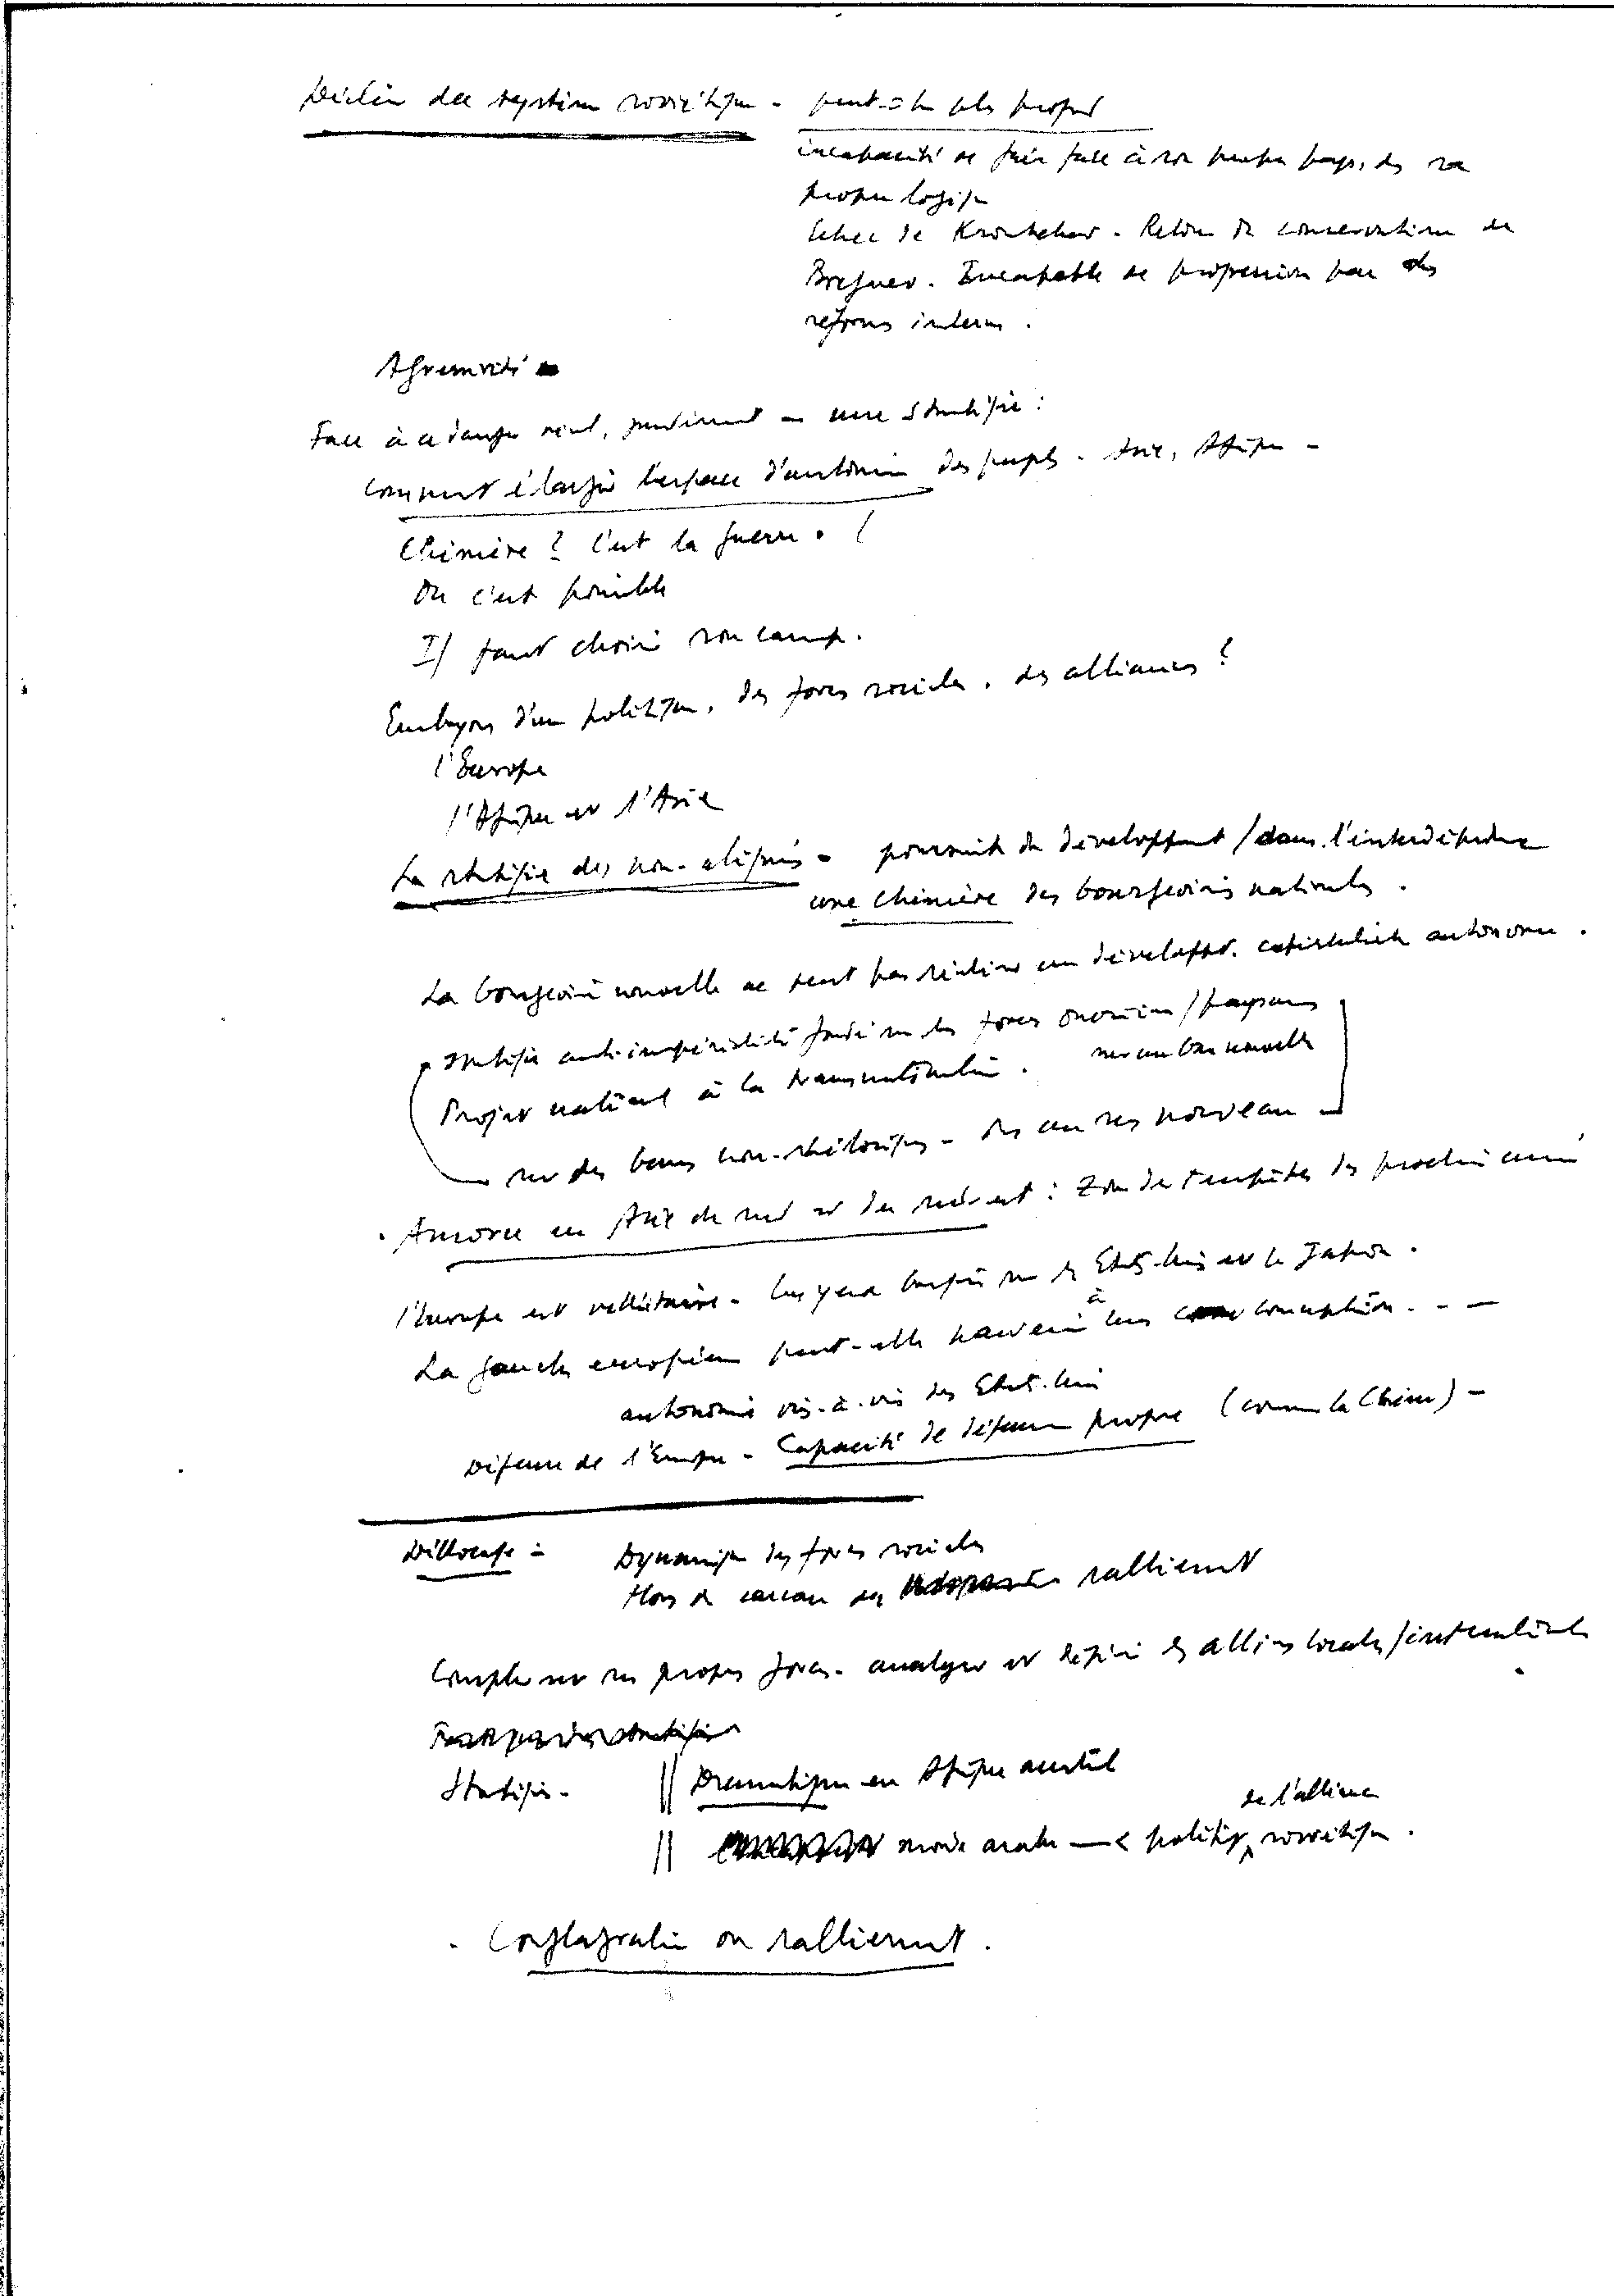 Déclin du système soviétique - peut-être plus profond
incapacité de faire face à son propre pays, des sa
propre logique
Echec de Kroutchev - Retour du conservatisme de
Brejnev. Incapable de progression par des
réformes internes.
Agressivité
Face à ce danger réel, gendarment une stratégie :
comment élargir l'espace d'autonomie des peuples. Asie, Afrique -
Chimère ? C'est la guerre. (
Ou c'est possible
Il faut choisir son camp.
Embryons d'une politique, des forces sociales, des alliances ?
l'Europe
l'Afrique et l'Asie
La stratégie des non-alignés - poursuite du développement / dans l'interdépendance
une chimère des bourgeoisies nationales.
La bourgeoisie nouvelle ne peut pas réaliser un développt. capitaliste autonome.
Stratégie anti-impérialiste fondée sur les forces ouvrières / paysannes
Projet national à la transnationalisation. sur une base nouvelle
sur des bases non-rhétoriques - des axes nouveaux
. Amorce en Asie du sud et du sud-est : Zone des tempêtes des prochaines années
l'Europe est velléitaire - les yeux braqués sur les Etats-Unis et le Japon.
La gauche européenne peut-elle parvenir à une conception - - -
autonomie vis-à-vis des Etats-Unis
Défense de l'Europe - Capacité de défense propre (comme la Chine) -
Déblocage - Dynamique des forces sociales
Hors du carcan du ralliement
Compter sur ses propres forces - analyser et définir les alliés locaux / internationaux
Stratégie - || Dramatique en Afrique australe
de l'alliance
|| monde arabe —< politique soviétique.
. Conflagration ou ralliement.